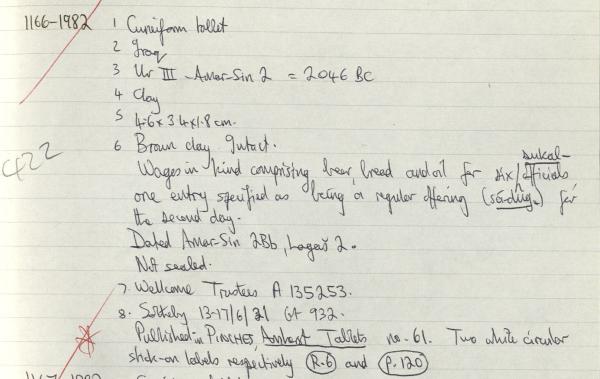 1166-1982 1 Cuneiform tablet
2 Iraq
3 Ur III - Amar-Sin 2 = 2046 BC
4 Clay
5 4.6 x 3.4 x 1.8 cm.
422
6 Brown clay Intact.
sukal-
Wages in kind comprising beer, bread and oil for six / officials
one entry specified as being a regular offering (sá-dug4) for
the second day.
Dated Amar-Sin 2Bb, Lagaš 2.
Not sealed.
7. Wellcome Trustees A 135253.
8. Sotheby 13-17/6/21 Gt 932.
Published in PINCHES, Amherst Tablets no. 61. Two white circular
stick-on labels respectively R.6 and P.120